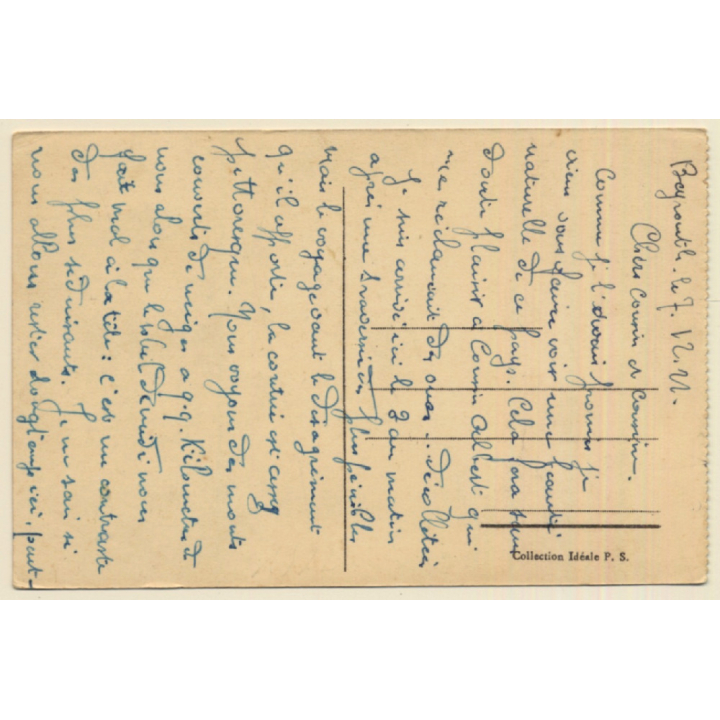 Beyrouth. le 7. 12. 21.
Chers Cousin et Cousine.
Comme je l'avais promis je
viens vous faire voir une beauté
naturelle de ce pays. Cela fera sans
doute plaisir à Cousin Albert qui
me réclamait des vues... décolletées
Je suis arrivé ici le 2 au matin
après une traversée des plus pénibles
Mais le voyage vaut le désagrément
qu'il apporte, la contrée est assez
pittoresque. Nous voyons des monts
couverts de neiges à qq. Kilomètres de
nous alors que le soleil de midi nous
fait mal à la tête : c'est un contraste
des plus séduisants. Je ne sais si
nous allons rester longtemps ici, peut-
Collection Idéale P. S.